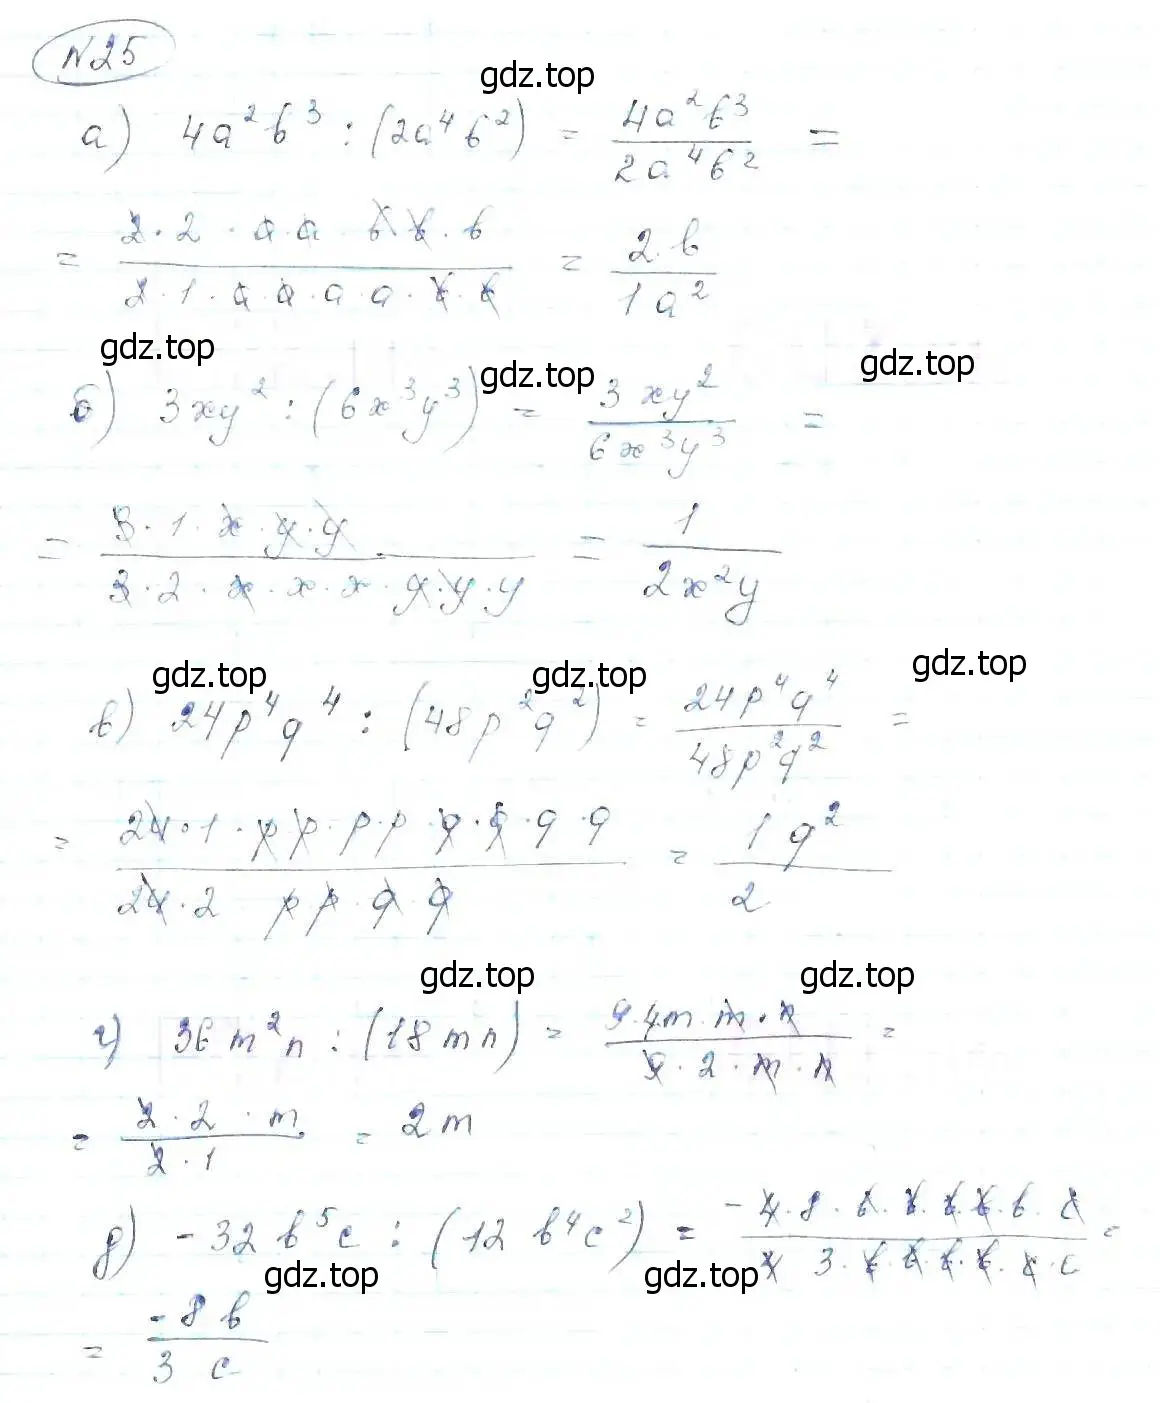 N25
gdz.top
а) 4a²b³ : (2a⁴b²) = 4a²b³ / 2a⁴b² =
= 2·2·a·a·b·b·b / 2·1·a·a·a·a·b·b = 2·b / 1a²
gdz.top gdz.top gdz.top
б) 3xy² : (6x³y³) = 3xy² / 6x³y³ =
= 3·1·x·y·y / 3·2·x·x·x·y·y·y = 1 / 2x²y
gdz.top gdz.top gdz.top
в) 24p⁴q⁴ : (48p²q²) = 24p⁴q⁴ / 48p²q² =
= 24·1·p·p·p·p·q·q·q·q / 24·2 p·p·q·q = 1q² / 2
gdz.top gdz.top
г) 36m²n : (18mn) = 9·4m·m·n / 9·2·m·n =
= 2·2·m / 2·1 = 2m
д) -32b⁵c : (12b⁴c²) = -4·8·b·b·b·b·b·c / 4 3·b·b·b·b·c·c =
gdz.top gdz.top
= -8b / 3c